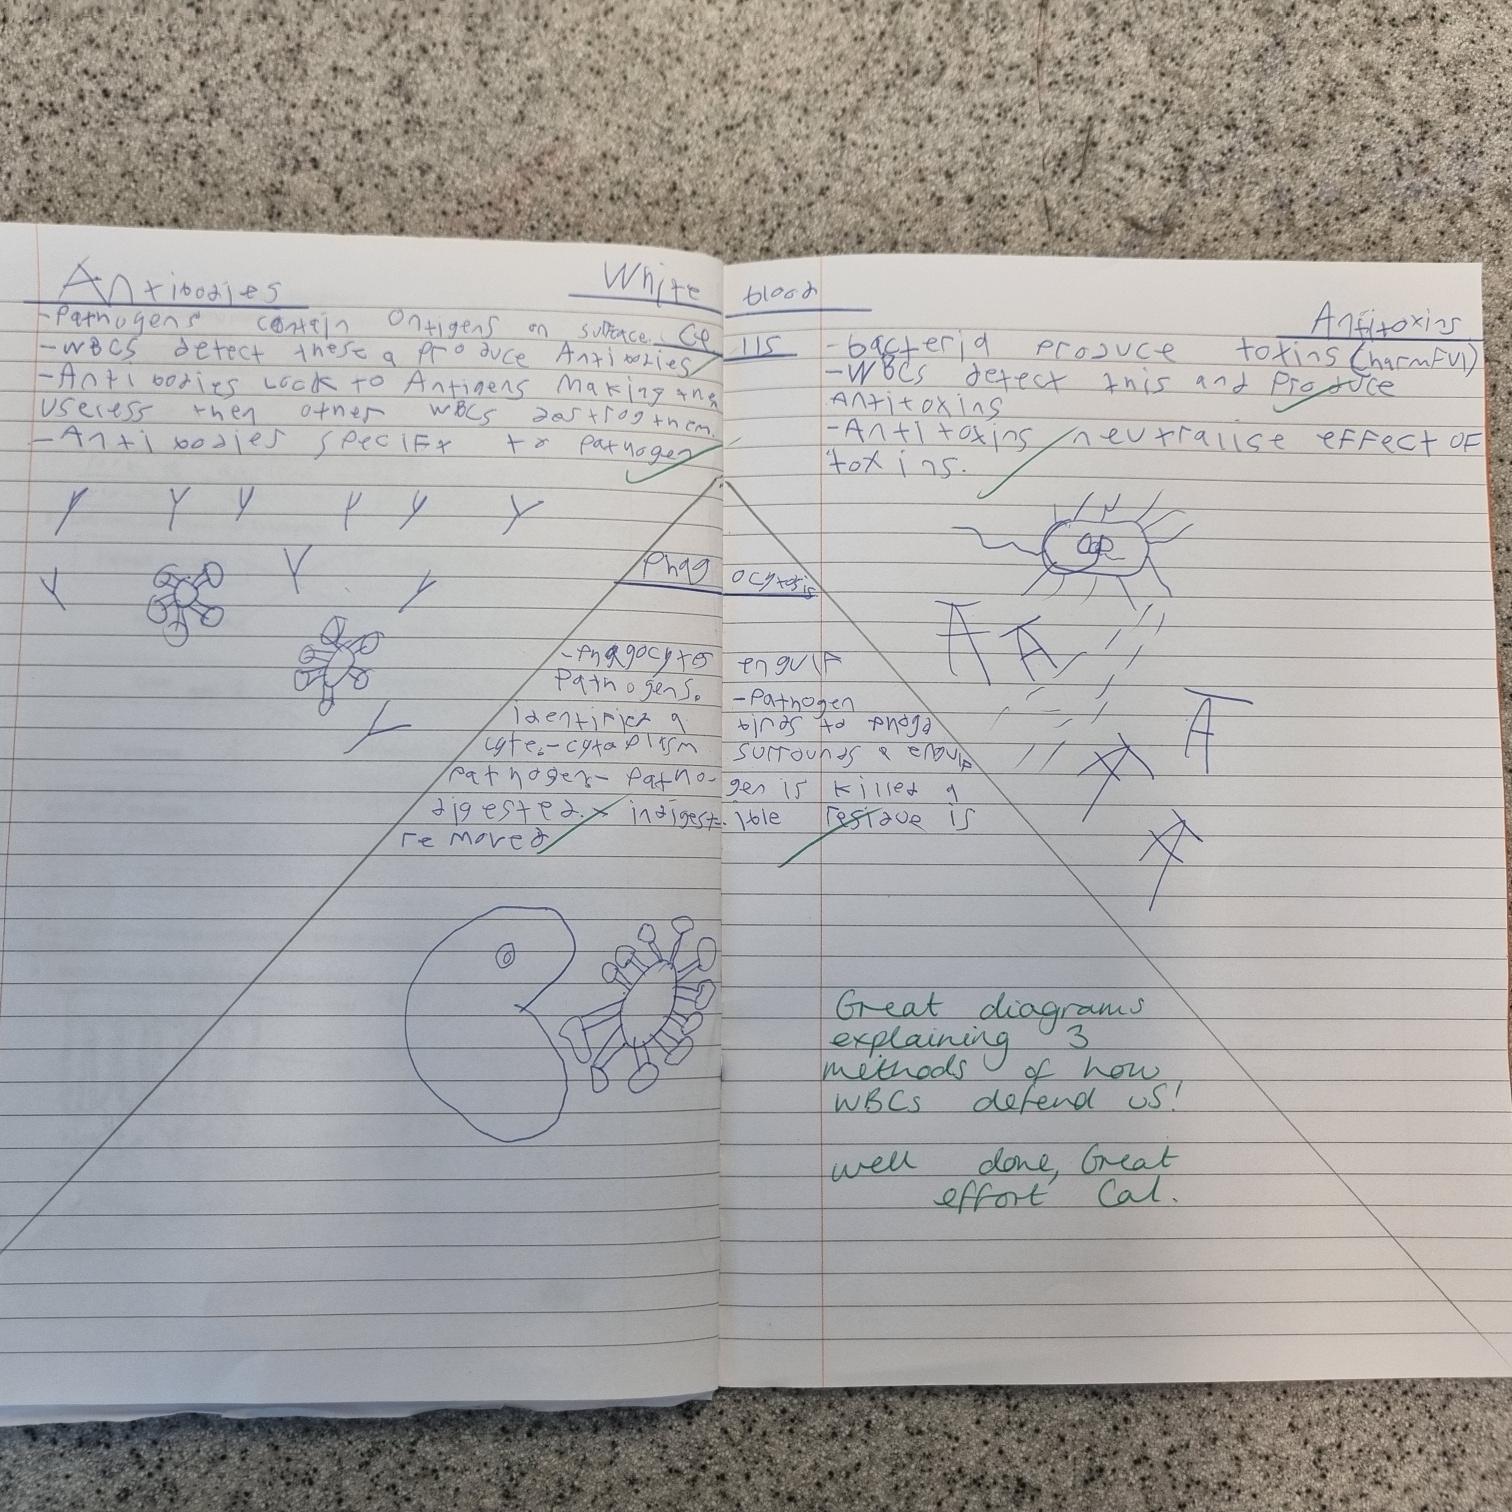 Antibodies
White blood
Cells
-Pathogens contain Ontigens on surface.
-WBCS detect these & produce Antibodies
-Anti bodies Lock to Antigens Making them
useless then other WBCS destroy them.
-Anti bodies specific to pathogen
Antitoxins
-bacteria produce toxins (harmful)
-WBCS detect this and produce
Antitoxins
-Antitoxins neutralise effect of
toxins.
Phagocytosis
-Phagocytes engulf
Pathogens. -Pathogen
identified &
cyte.-cytoplasm surrounds & engulf
pathogen- pathogen is killed &
digested. indigestible residue is
removed
A A
A
A
A
Great diagrams
explaining 3
methods of how
WBCs defend us!
well done, Great
effort Cal.